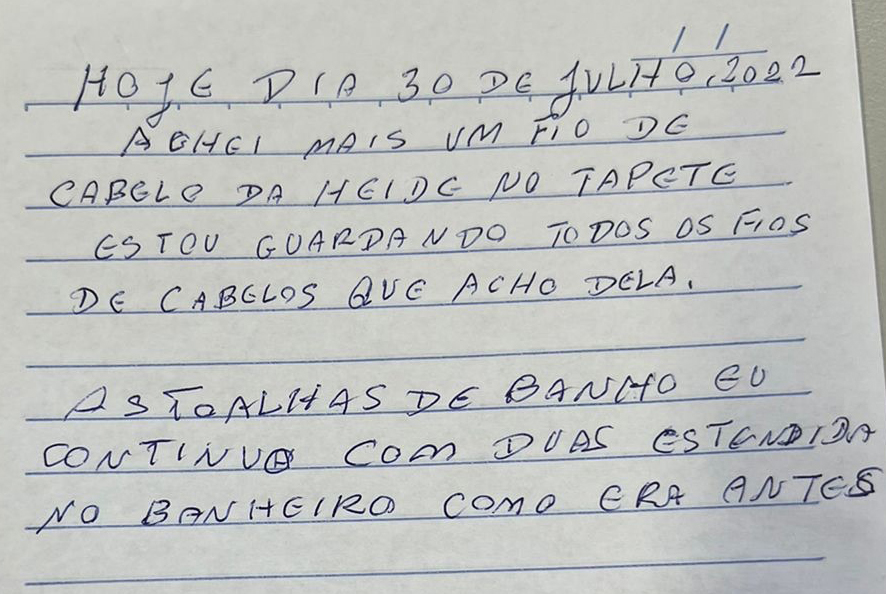 HOJE DIA 30 DE JULHO, 2022
ACHEI MAIS UM FIO DE
CABELO DA HEIDE NO TAPETE
ESTOU GUARDANDO TODOS OS FIOS
DE CABELOS QUE ACHO DELA.
AS TOALHAS DE BANHO EU
CONTINUO COM DUAS ESTENDIDA
NO BANHEIRO COMO ERA ANTES